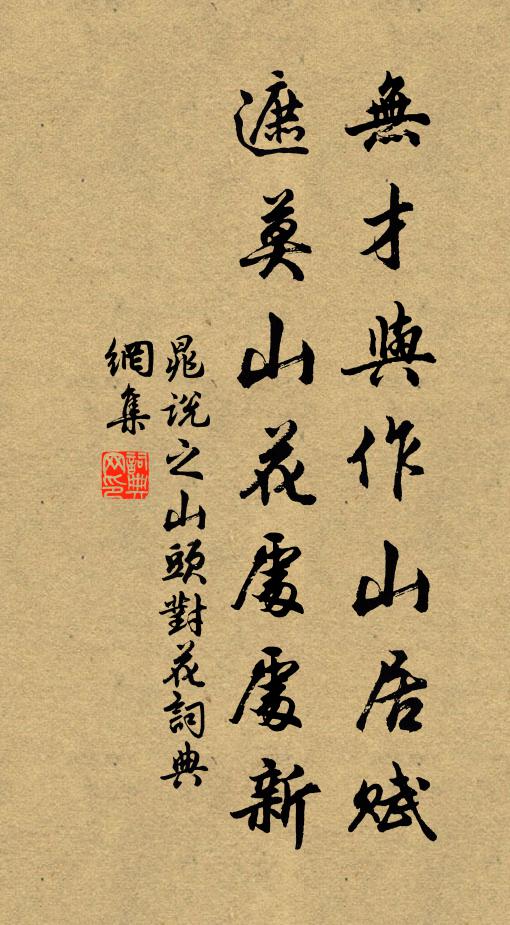 無才與作山居賦
遮莫山花處處新
晁說之山頭對花詞典
網集
詞典
网印